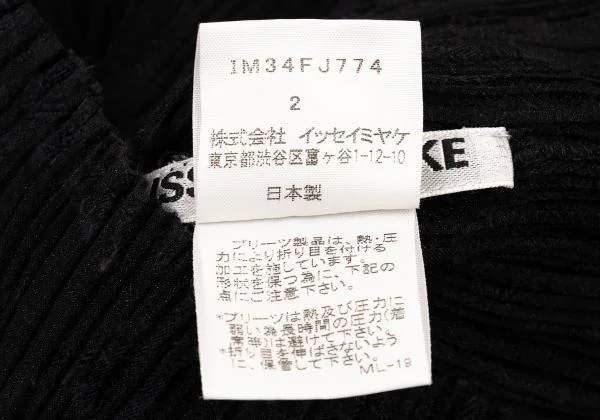 1M34FJ774
2
株式会社 イッセイミヤケ
東京都渋谷区富ヶ谷1-12-10
日本製
プリーツ製品は、熱・圧
力により折り目を付ける
加工を施しています。
形状を保つ為に、下記の
点にご注意下さい。
*プリーツは熱及び圧力に
弱い為長時間の圧力(着
席等)は避けて下さい。
*折り目を伸ばさないよう
に、保管して下さい。
ML-19